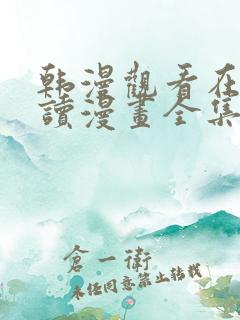 韩漫觀看在
讀漫畫全集
倉一衛
未经同意禁止转载